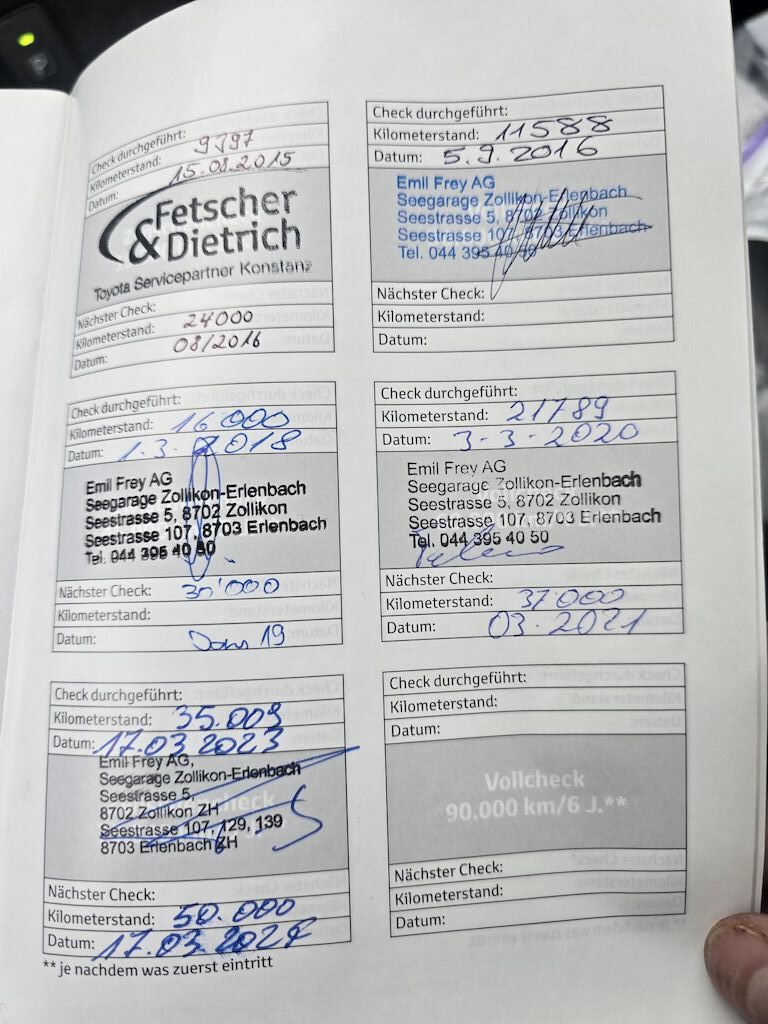 Check durchgeführt:
Kilometerstand: 9397
Datum: 15.08.2015
Fetscher
& Dietrich
Toyota Servicepartner Konstanz
Nächster Check:
Kilometerstand: 24000
Datum: 08/2016
Check durchgeführt:
Kilometerstand: 11588
Datum: 5.9.2016
Emil Frey AG
Seegarage Zollikon-Erlenbach
Seestrasse 5, 8702 Zollikon
Seestrasse 107, 8703 Erlenbach
Tel. 044 395 40 50
Nächster Check:
Kilometerstand:
Datum:
Check durchgeführt:
Kilometerstand: 16000
Datum: 1.3.2018
Emil Frey AG
Seegarage Zollikon-Erlenbach
Seestrasse 5, 8702 Zollikon
Seestrasse 107, 8703 Erlenbach
Tel. 044 395 40 50
Nächster Check: 30'000
Kilometerstand:
Datum: 19
Check durchgeführt:
Kilometerstand: 21789
Datum: 3-3-2020
Emil Frey AG
Seegarage Zollikon-Erlenbach
Seestrasse 5, 8702 Zollikon
Seestrasse 107, 8703 Erlenbach
Tel. 044 395 40 50
Nächster Check:
Kilometerstand: 37000
Datum: 03.2021
Check durchgeführt:
Kilometerstand: 35.009
Datum: 17.03.2023
Emil Frey AG,
Seegarage Zollikon-Erlenbach
Seestrasse 5,
8702 Zollikon ZH
Seestrasse 107, 129, 139
8703 Erlenbach ZH
Nächster Check:
Kilometerstand: 50.000
Datum: 17.03.2024
Check durchgeführt:
Kilometerstand:
Datum:
Vollcheck
90.000 km/6 J.**
Nächster Check:
Kilometerstand:
Datum:
** je nachdem was zuerst eintritt